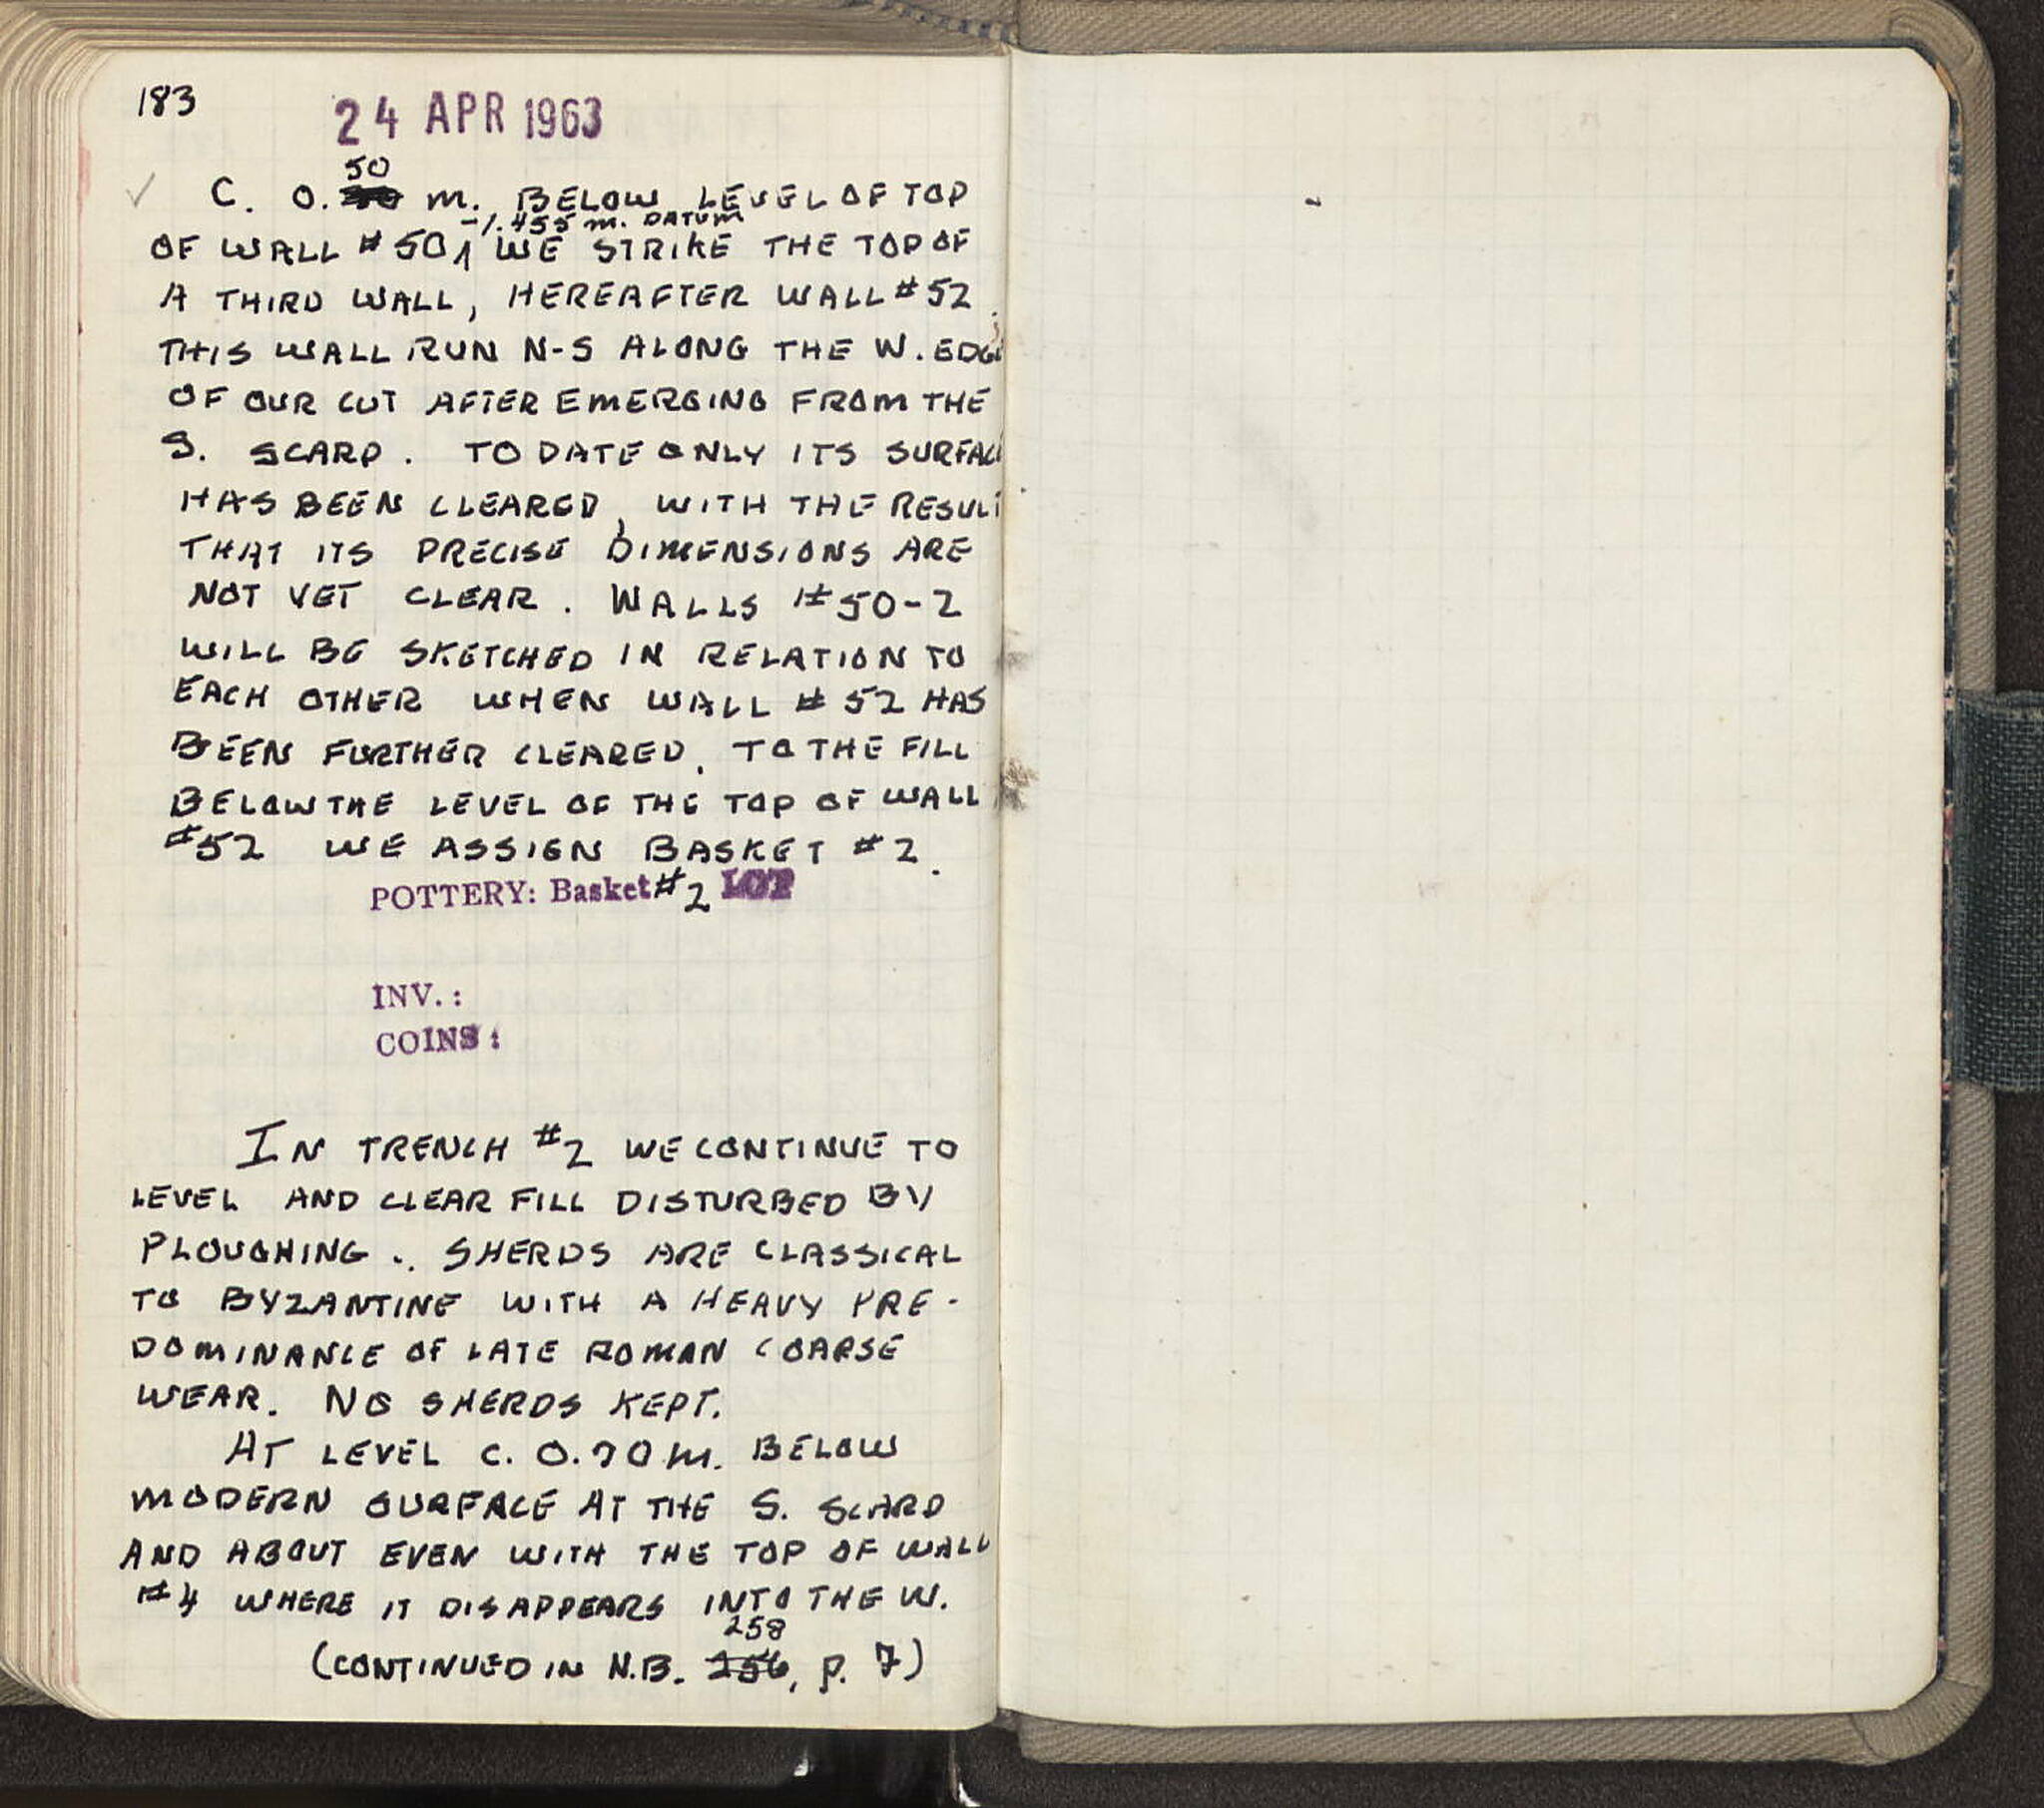 183
24 APR 1963
50
C. 0.30 m. BELOW LEVEL OF TOP
-1.455 m. DATUM
OF WALL #50, WE STRIKE THE TOP OF
A THIRD WALL, HEREAFTER WALL #52.
THIS WALL RUN N-S ALONG THE W. EDGE
OF OUR CUT AFTER EMERGING FROM THE
S. SCARP. TO DATE ONLY ITS SURFACE
HAS BEEN CLEARED, WITH THE RESULT
THAT ITS PRECISE DIMENSIONS ARE
NOT YET CLEAR. WALLS #50-2
WILL BE SKETCHED IN RELATION TO
EACH OTHER WHEN WALL #52 HAS
BEEN FURTHER CLEARED. TO THE FILL
BELOW THE LEVEL OF THE TOP OF WALL
#52 WE ASSIGN BASKET #2.
POTTERY: Basket #2 LOT
INV.:
COINS:
IN TRENCH #2 WE CONTINUE TO
LEVEL AND CLEAR FILL DISTURBED BY
PLOUGHING.. SHERDS ARE CLASSICAL
TO BYZANTINE WITH A HEAVY PRE-
DOMINANCE OF LATE ROMAN COARSE
WEAR. NO SHERDS KEPT.
AT LEVEL C. 0.70 m. BELOW
MODERN SURFACE AT THE S. SCARP
AND ABOUT EVEN WITH THE TOP OF WALL
#4 WHERE IT DISAPPEARS INTO THE W.
258
(CONTINUED IN N.B. 256, p. 7)